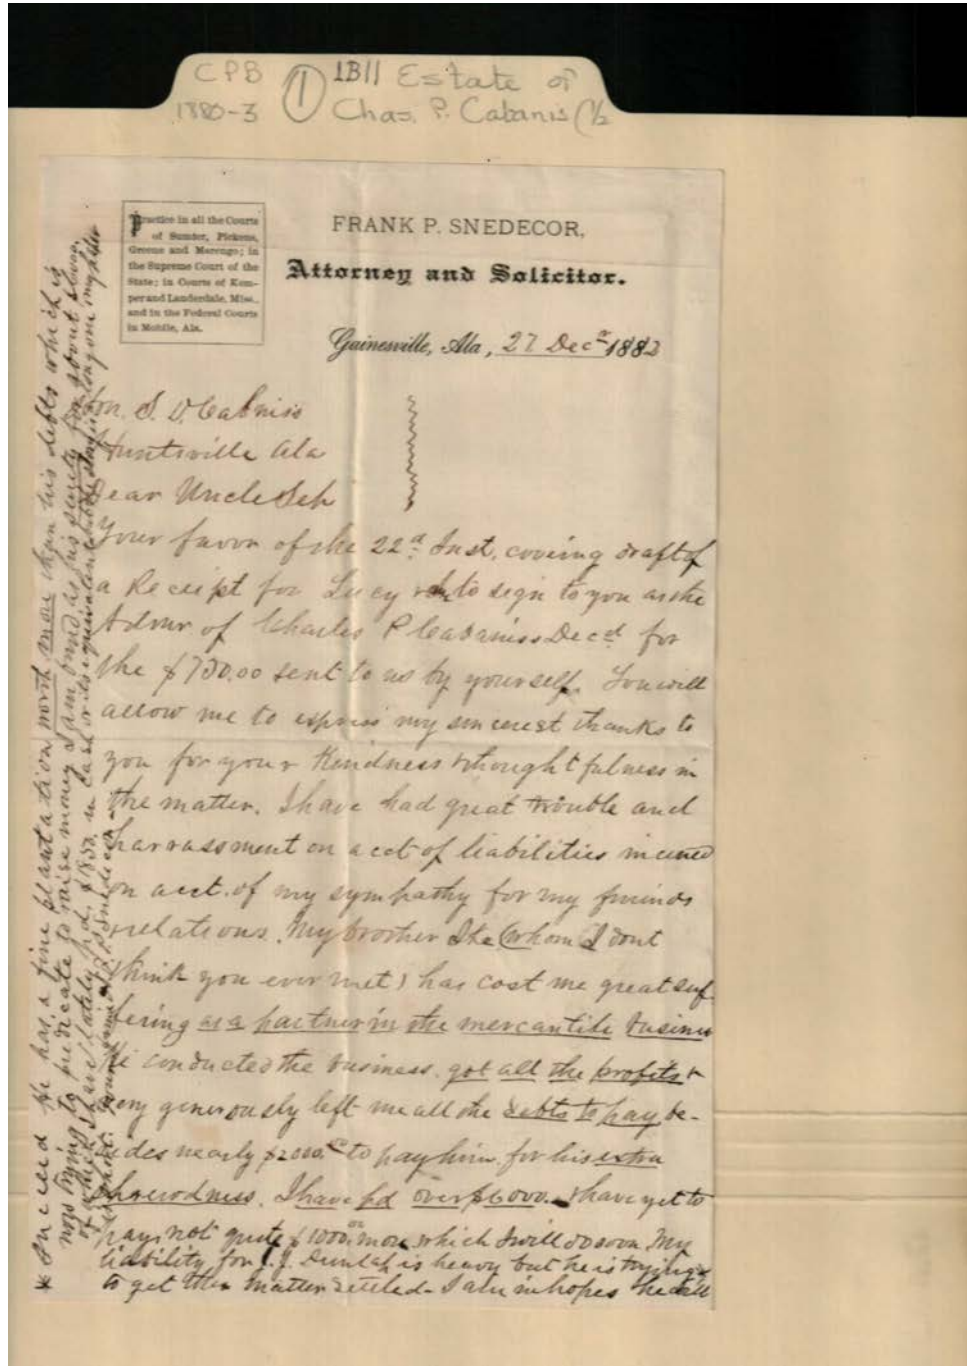 CPB ① 1B11 Estate of
1880-3 Chas. P. Cabanis (1/2
Practice in all the Courts
of Sumter, Pickens,
Greene and Marengo; in
the Supreme Court of the
State; in Courts of Kem-
per and Lauderdale, Miss.,
and in the Federal Courts
in Mobile, Ala.
FRANK P. SNEDECOR,
Attorney and Solicitor.
Gainesville, Ala, 27 Decr 1883
Hon. S. D. Cabniss
Huntsville Ala
Dear Uncle Sep
Your favor of the 22d Inst. covering draft of
a Receipt for Lucy to sign to you as the
Admr of Charles P Cabaniss Decd for
the $750.00 sent to us by yourself. You will
allow me to express my sincerest thanks to
you for your Kindness & thoughtfulness in
the matter. I have had great trouble and
harrassment on acct of liabilities incurred
on acct. of my sympathy for my friends
& relations. My brother Ike (whom I dont
think you ever met) has cost me great suf-
fering as a partner in the mercantile business
He conducted the business. got all the profits &
very generously left me all the debts to pay be-
sides nearly $2000. to pay him for his extra
shrewdness. I have pd over $6000. & have yet to
pay not quite $1000. more which I will do soon. My
liability for J. J. Dunlap is heavy but he is trying
to get the matter settled - I am in hopes he will
* succeed He has a fine plantation worth more than his debts which is
now trying to predicate to raise money I am bound as his surety for about
of which I have lately pd. $1850. in cash or its equivalent